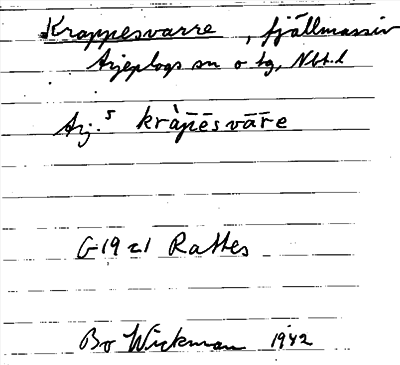 Krappesvarre, fjällmassiv
Arjeplogs sn o tg, Nbt.l
Arj.⁵ kràp̄ēsvāre
G 19 c1 Rattes
Bo Wickman 1942